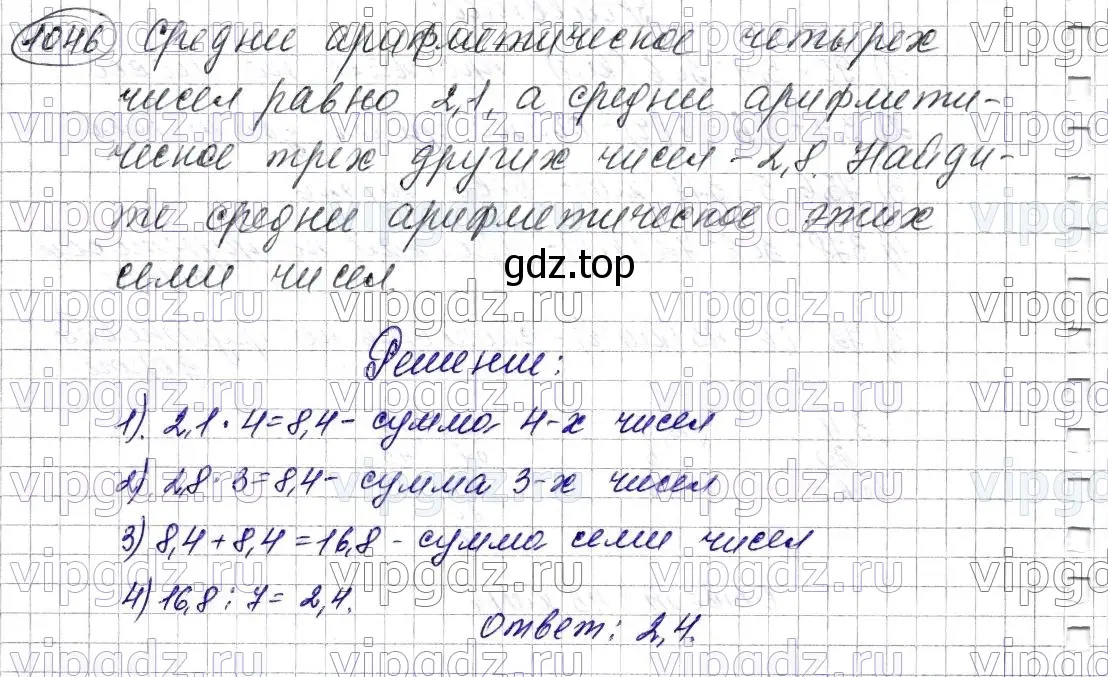 1046 Средни арифметическое четырех
чисел равно 2,1, а средни арифмети-
ческое трех других чисел - 2,8. Найди-
те средни арифметическое этих
семи чисел.
gdz.top
Решении:
1). 2,1 · 4 = 8,4 - сумма 4-х чисел
2) 2,8 · 3 = 8,4 - сумма 3-х чисел
3) 8,4 + 8,4 = 16,8 - сумма семи чисел
4) 16,8 : 7 = 2,4.
Ответ: 2,4.